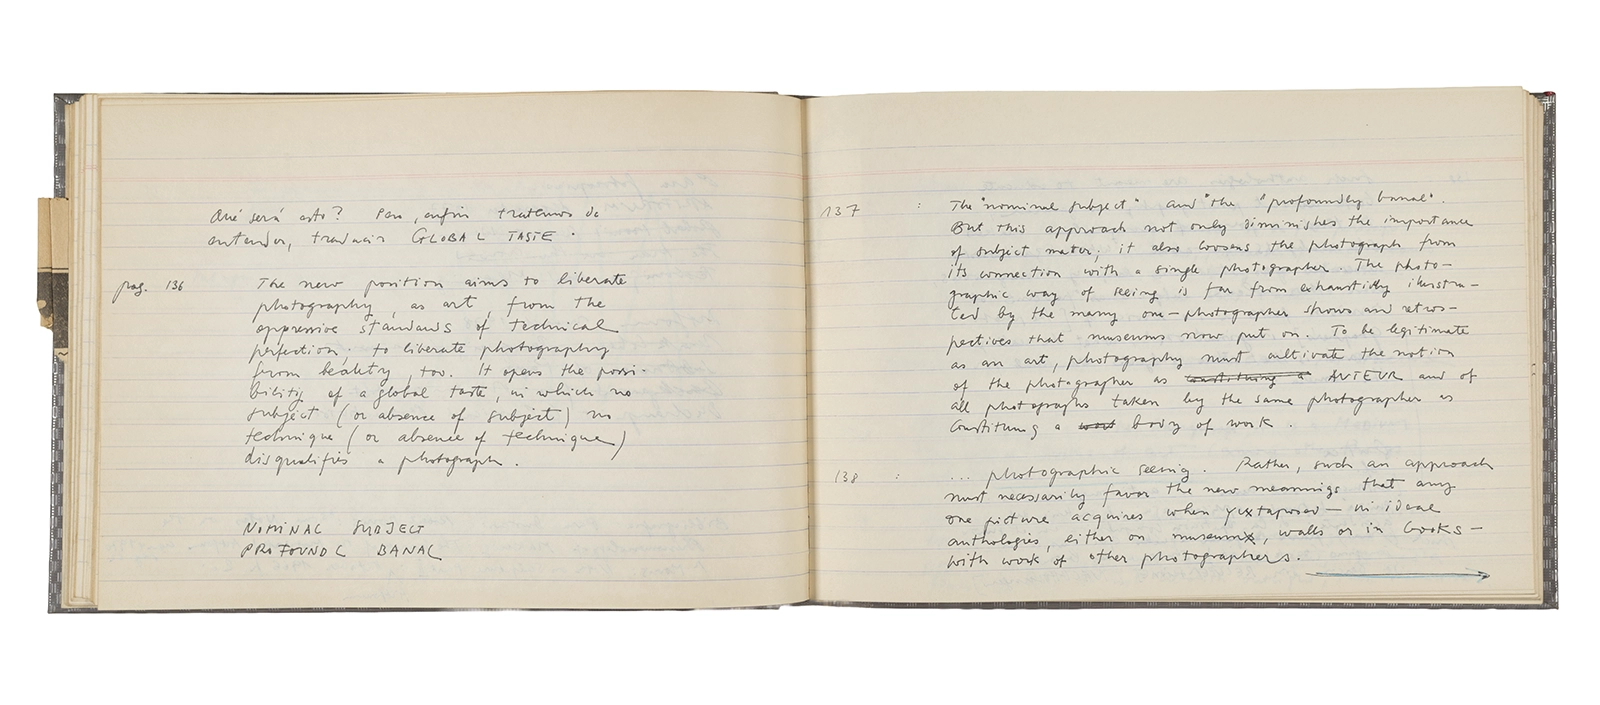 Qué será esto? Pero, enfin tratemos de
entender, traducir GLOBAL TASTE.
pag. 136
The new position aims to liberate
photography, as art, from the
oppressive standards of technical
perfection; to liberate photography
from beauty, too. It opens the possi-
bility of a global taste, in which no
subject (or absence of subject) no
technique (or absence of technique)
disqualifies a photograph.
NOMINAL SUBJECT
PROFOUNDL BANAL
137 :
The "nominal subject" and "the "profoundly banal".
But this approach not only diminishes the importance
of subject mater; it also loosens the photograph from
its connection with a single photographer. The photo-
graphic way of seeing is far from exhaustidly illustra-
ted by the many one-photographer shows and retros-
pectives that museums now put on. To be legitimate
as an art, photography must cultivate the notion
of the photographer as constituing a AUTEUR and of
all photographs taken by the same photographer as
constituing a work body of work.
138 :
... photographic seeing. Rather, such an approach
must necessarily favor the new meanings that any
one picture acquires when yuxtaposed — in ideal
anthologies, either on museums, walls or in books —
with work of other photographers.